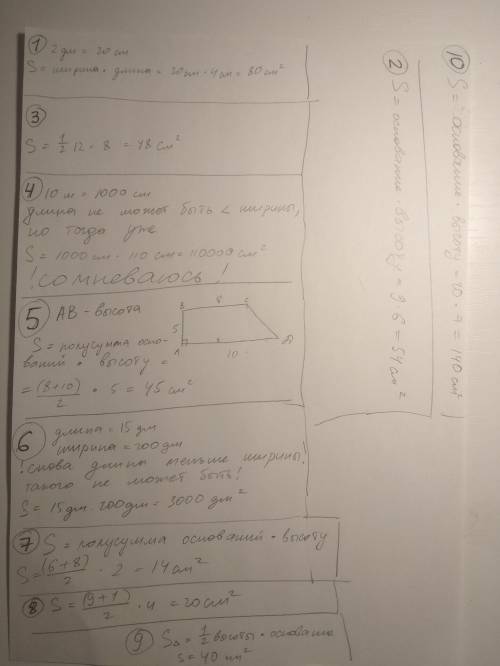 1 2 дм = 20 см
S = ширина · длина = 20 см · 4 см = 80 см²
3
S = 1/2 12 · 8 = 48 см²
4 10 м = 1000 см
длина не может быть < ширины,
но тогда уже
S = 1000 см · 110 см = 110000 см²
! сомневаюсь !
5 AB - высота
S = полусумма осно-
ваний · высоту =
= (8+10)/2 · 5 = 45 см²
B 8 C
5
A 10 D
6 длина = 15 дм
ширина = 200 дм
! снова длина меньше ширины,
такого не может быть!
S = 15 дм · 200 дм = 3000 дм²
7 S = полусумма оснований · высоту
S = (6+8)/2 · 2 = 14 см²
8 S = (9+1)/2 · 4 = 20 см²
9 S△ = 1/2 высоты · основание
S = 40 мм²
2 S = основание · высоту = 9 · 6 = 54 см²
10 S = основание · высоту =
= 140 см²